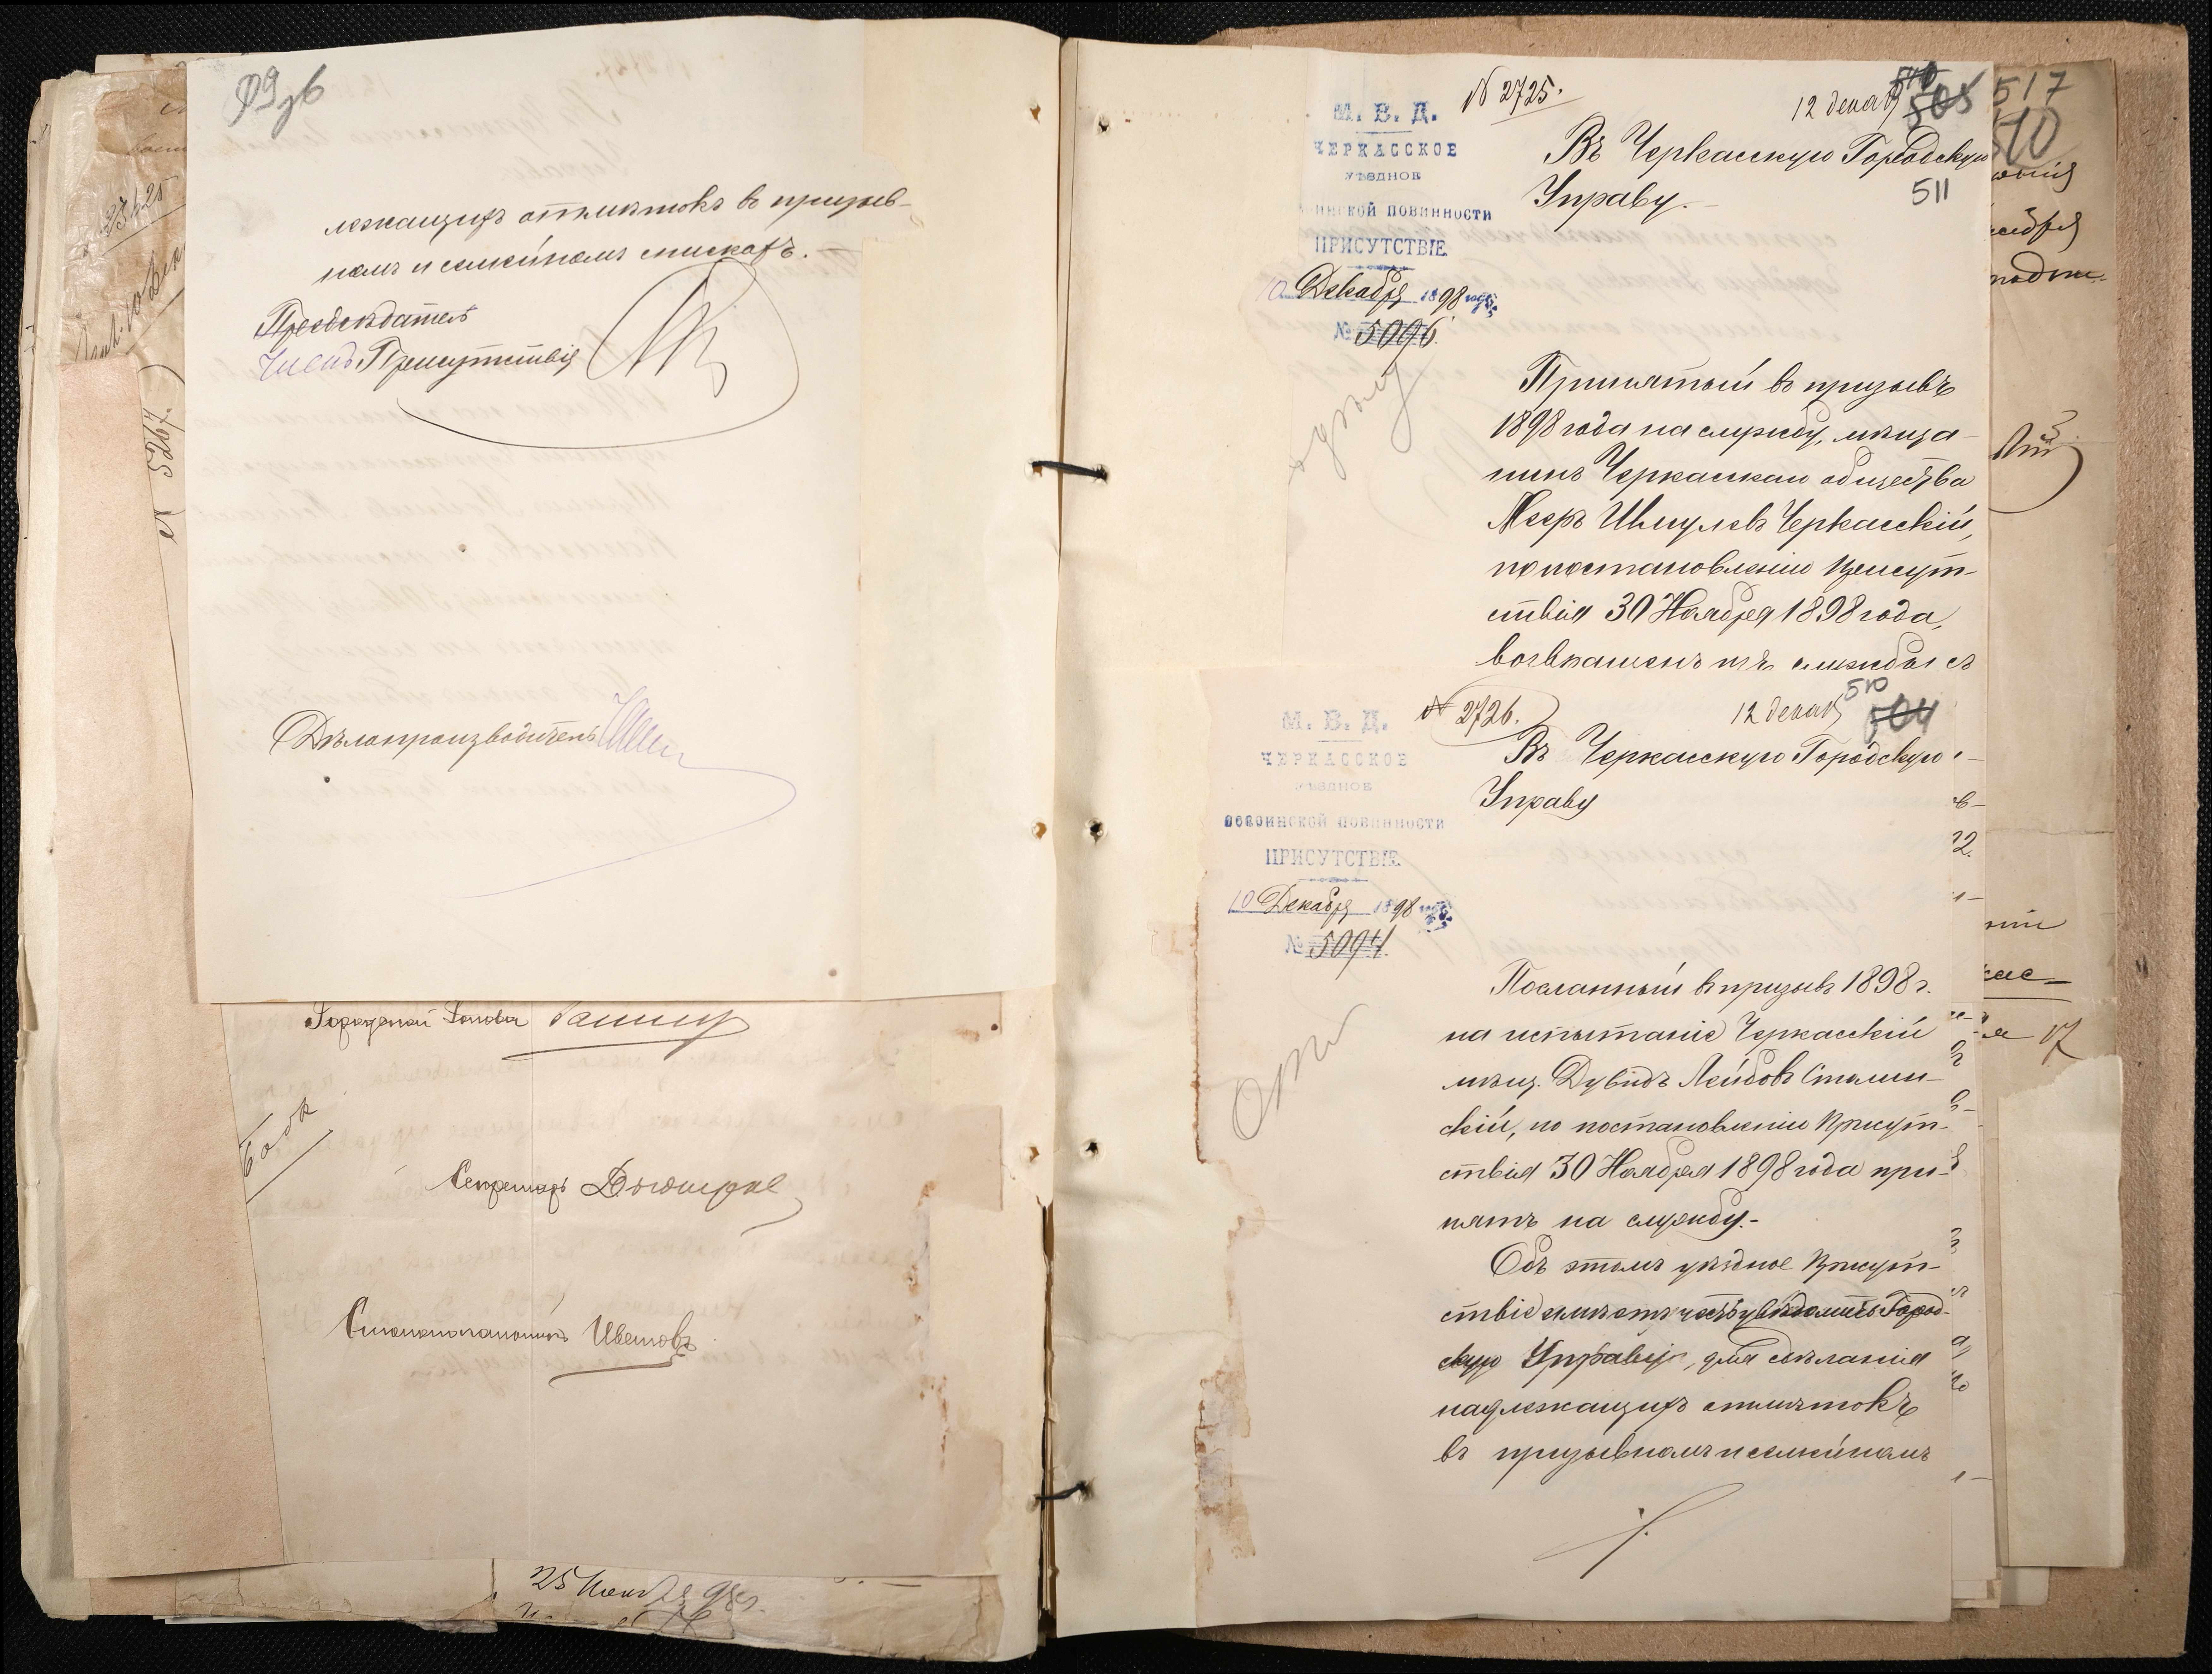 лежащихъ отмѣтокъ въ призыв-
номъ и семейномъ спискахъ.
Предсѣдатель
Членъ Присутствія
Дѣлопроизводитель
№ 5267.
Городской Голова
Секретарь
Столоначальникъ Цвѣтовъ
25
№ 2725.
12 декаб
505
М. В. Д.
ЧЕРКАССКОЕ
УѢЗДНОЕ
ВОИНСКОЙ ПОВИННОСТИ
ПРИСУТСТВІЕ
10 Декабря 1898 года
№ 5096.
Въ Черкасскую Городскую
Управу.
511
Принятый въ призывъ
1898 года на службу, мѣща-
нинъ Черкасскаго общества
Мееръ Шмулевъ Черкасскій,
по постановленію Присут-
ствія 30 Ноября 1898 года,
возвращенъ изъ службы съ
№ 2726.
12 декаб
510
504
М. В. Д.
ЧЕРКАССКОЕ
УѢЗДНОЕ
ПО ВОИНСКОЙ ПОВИННОСТИ
ПРИСУТСТВІЕ
10 Декабря 1898 года
№ 5094.
Въ Черкасскую Городскую
Управу
Посланный въ призывъ 1898 г.
на испытаніе Черкасскій
мѣщ. Дувидъ Лейбовъ
скій, по постановленію Присут-
ствія 30 Ноября 1898 года при-
нятъ на службу.-
Объ этомъ уѣздное Присут-
ствіе имѣетъ честь увѣдомить Город-
скую Управу, для сдѣланія
надлежащихъ отмѣтокъ
въ призывномъ и семейномъ
517
510